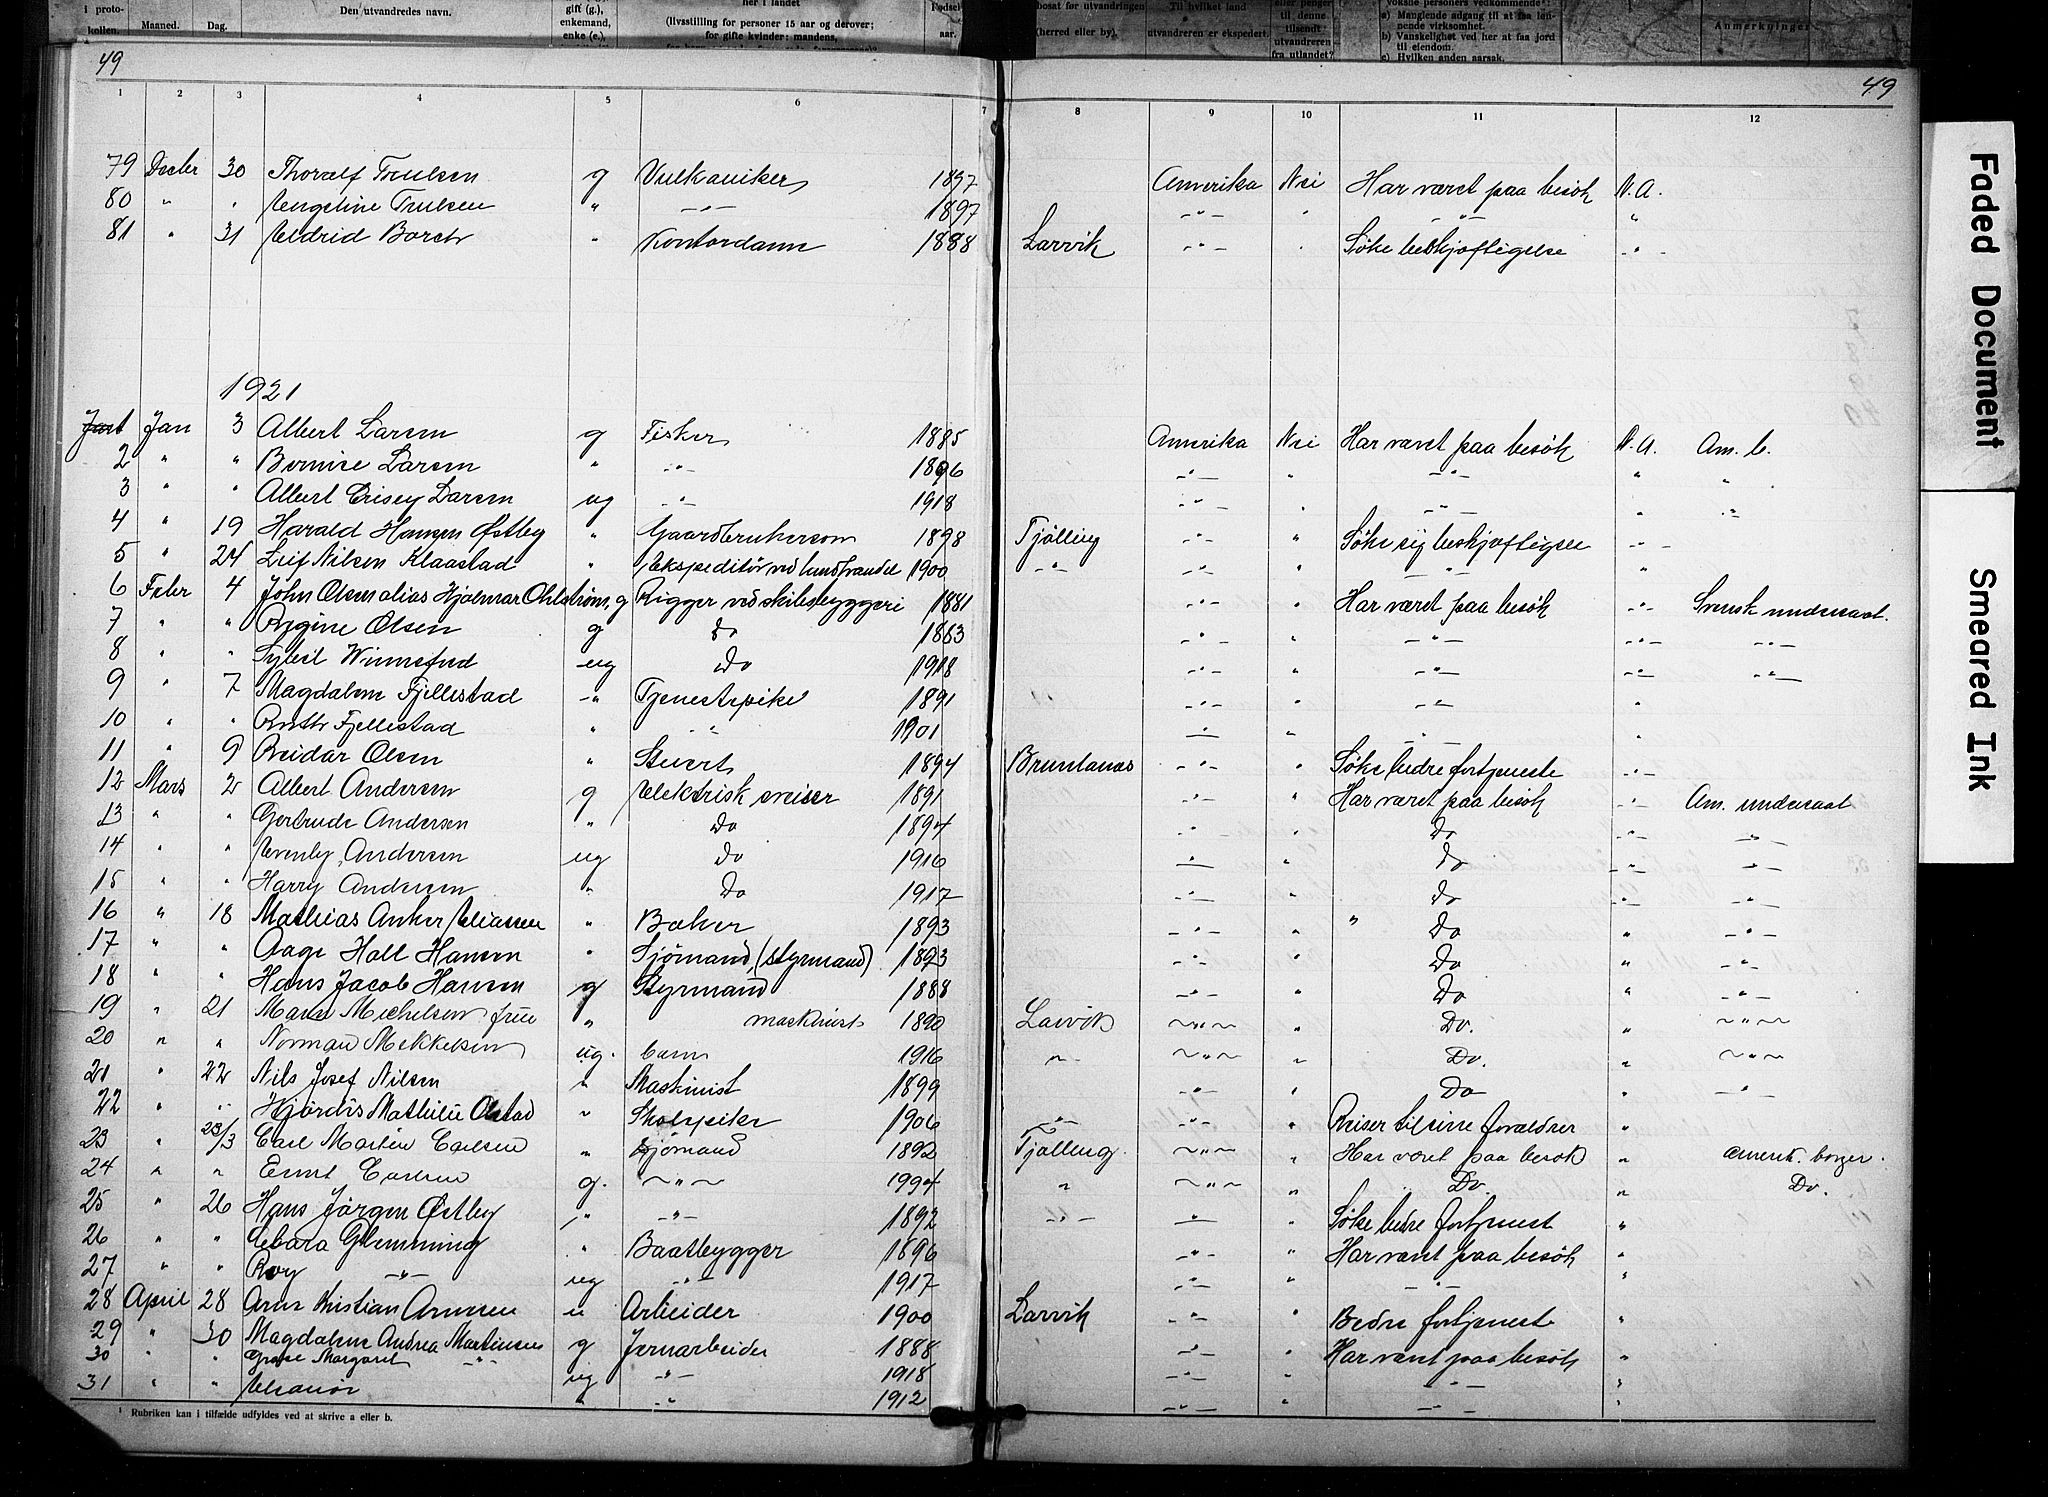 i proto-
kollen. Maaned. Dag. Den utvandredes navn. gift (g.), enkemand, enke (e.), her i landet (livsstilling for personer 15 aar og derover; for gifte kvinder: mandens, Fødsel aar. bosat før utvandringen (herred eller by). Til hvilket land utvandreren er ekspedert. eller penger til denne tilsendt utvandreren fra utlandet? voksne personers vedkommende: a) Manglende adgang til at faa løn- nende virksomhet. b) Vanskelighet ved her at faa jord til eiendom. c) Hvilken anden aarsak. Anmerkninger
49 49
1 2 3 4 5 6 7 8 9 10 11 12
79 Decbr 30 Thoralf Trulsen g Vulkaniker 1897 Amerika Nei Har været paa besök N.A.
80 " " Engeline Trulsen " -"- 1897 -"- " -"- "
81 " 31 Eldrid Borch " Kontordame 1888 Larvik -"- " Söke beskjæftigelse -"-
1921
Jan 3 Albert Larsen g Fisker 1885 Amerika Nei Har været paa besök N.A. Am. b.
2 " " Bernise Larsen " -"- 1896 -"- " -"- " "
3 " " Albert Larsen ug -"- 1918 -"- " -"- " -"-
4 " 19 Harald Hansen Østby " Gaardbrukersön 1898 Tjölling -"- " Söke sig beskjæftigelse -"-
5 " 24 Leif Nilsen Klaastad " Ekspeditör ved landhandel 1900 -"- -"- " -"- "
6 Febr 4 John Olsen alias Hjalmar Ohlström, g Rigger ved skibsbyggeri 1881 -"- " Har været paa besök -"- Svensk undersaat.
7 " " Regine Olsen g Do 1883 -"- " -"- -"- -"-
8 " " Sybil ug Do 1918 -"- " -"- -"- -"-
9 " 7 Magdalene Fjellestad -"- Tjenestepike 1891 -"- " -"- "
10 " " Ruth Fjellestad " -"- 1901 -"- " -"- "
11 " 9 Reidar Olsen " Stuert 1894 Brunlanæs -"- " Söke bedre fortjeneste -"-
12 Mars 2 Albert Andersen g Elektrisk sveiser 1891 -"- " Har været paa besök -"- Am. undersaat
13 " " Gertrude Andersen " Do 1894 -"- " Do -"- -"-
14 " " Andersen ug Do 1916 -"- " Do -"- -"-
15 " " Harry Andersen " Do 1917 -"- " Do -"- -"-
16 " 18 Mathias Anker Eliassen " Baker 1893 -"- " " Do " -"-
17 " " Aage Hall Hansen " Sjömand, (styrmand) 1893 -"- " Do " -"-
18 " " Hans Jacob Hansen g Styrmand 1888 -"- " Do " -"-
19 " 21 Marie Michelsen frue " maskinist 1890 Larvik ~"~ " Do. " ~"~
20 " " Norman Mikkelsen ug. barn 1916 " ~"~ " Do. " ~"~
21 " 22 Nils Josef Nilsen " Maskinist 1899 -"- " Do " -"-
22 " " Hjördis Mathilie Olstad " Skolepike 1906 -"- -"- " Reiser til sine forældrer "
23 " 23/3 Carl Martin Carlsen " Sjömand 1892 Tjölling ~"~ " Har været paa besök " amerik. borger.
24 " " Carlsen g. ~"~ 1994 " ~"~ " Do. " Do.
25 " 26 Hans Jörgen Østby " -"- 1892 -"- -"- " Söke bedre fortjenest "
26 " " Ebara Glemming " Baatbygger 1896 -"- " Har været paa besök "
27 " " Roy -"- ug -"- 1917 -"- " -"- "
28 April 28 Arne Kristian Arnesen u Arbeider 1900 Larvik -"- " Bedre fortjenest "
29 " 30 Magdalene Andrea Martinsen g Jernarbeider 1888 -"- " Har været paa besök "
30 " " Grace Margaret -"- ug -"- 1918 -"- " -"- "
31 " " Eleanor " -"- 1912 -"- " -"- "
1 Rubriken kan i tilfælde udfyldes ved at skrive a eller b.
Faded Document
Smeared Ink